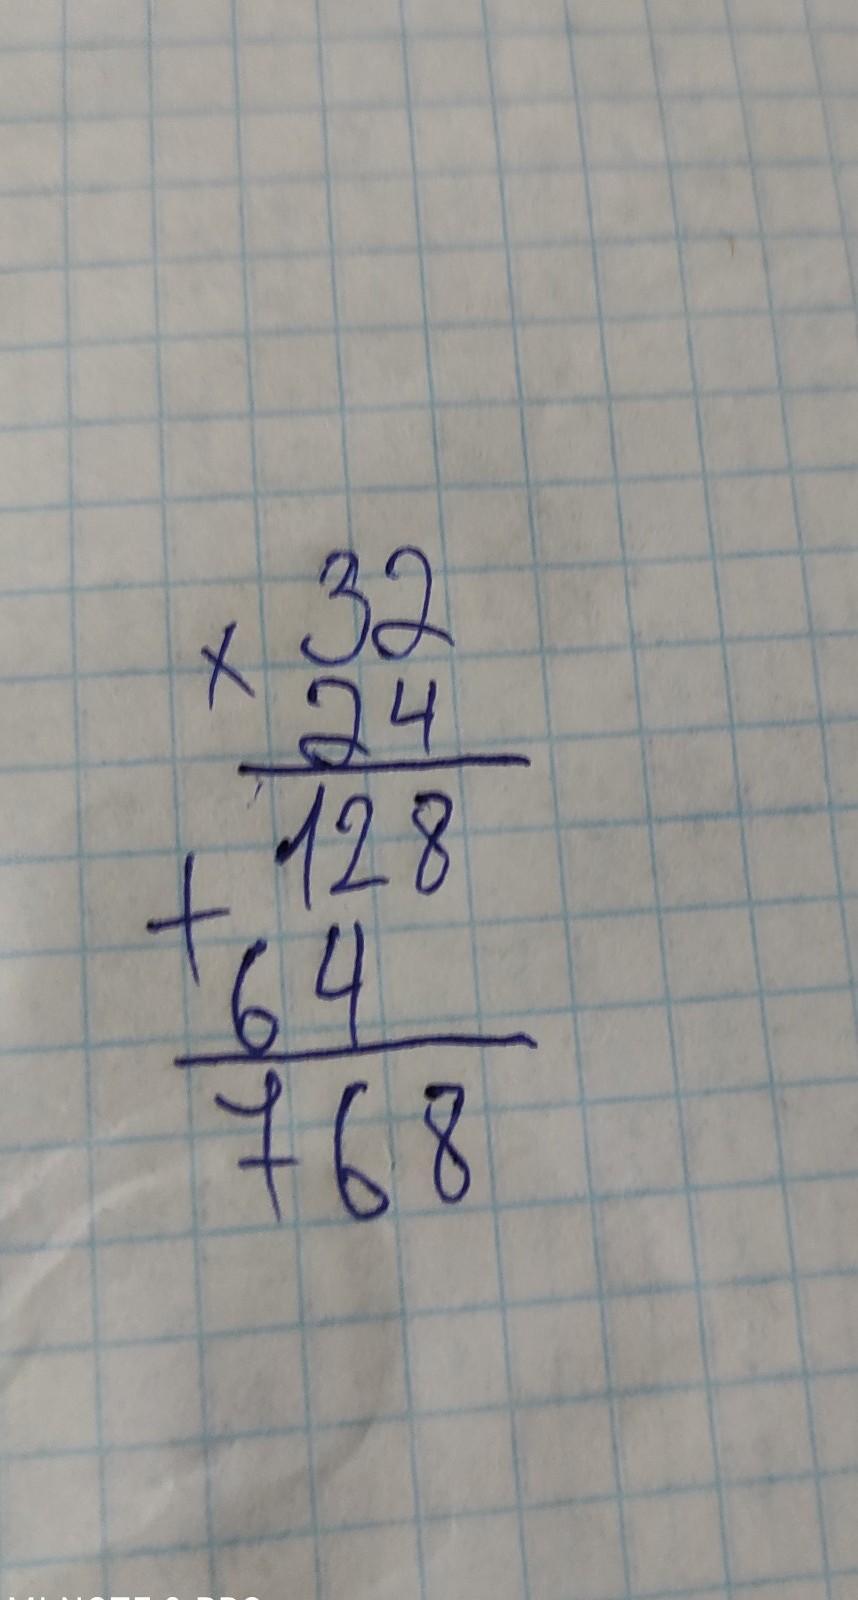 32
×
24
128
+
64
768